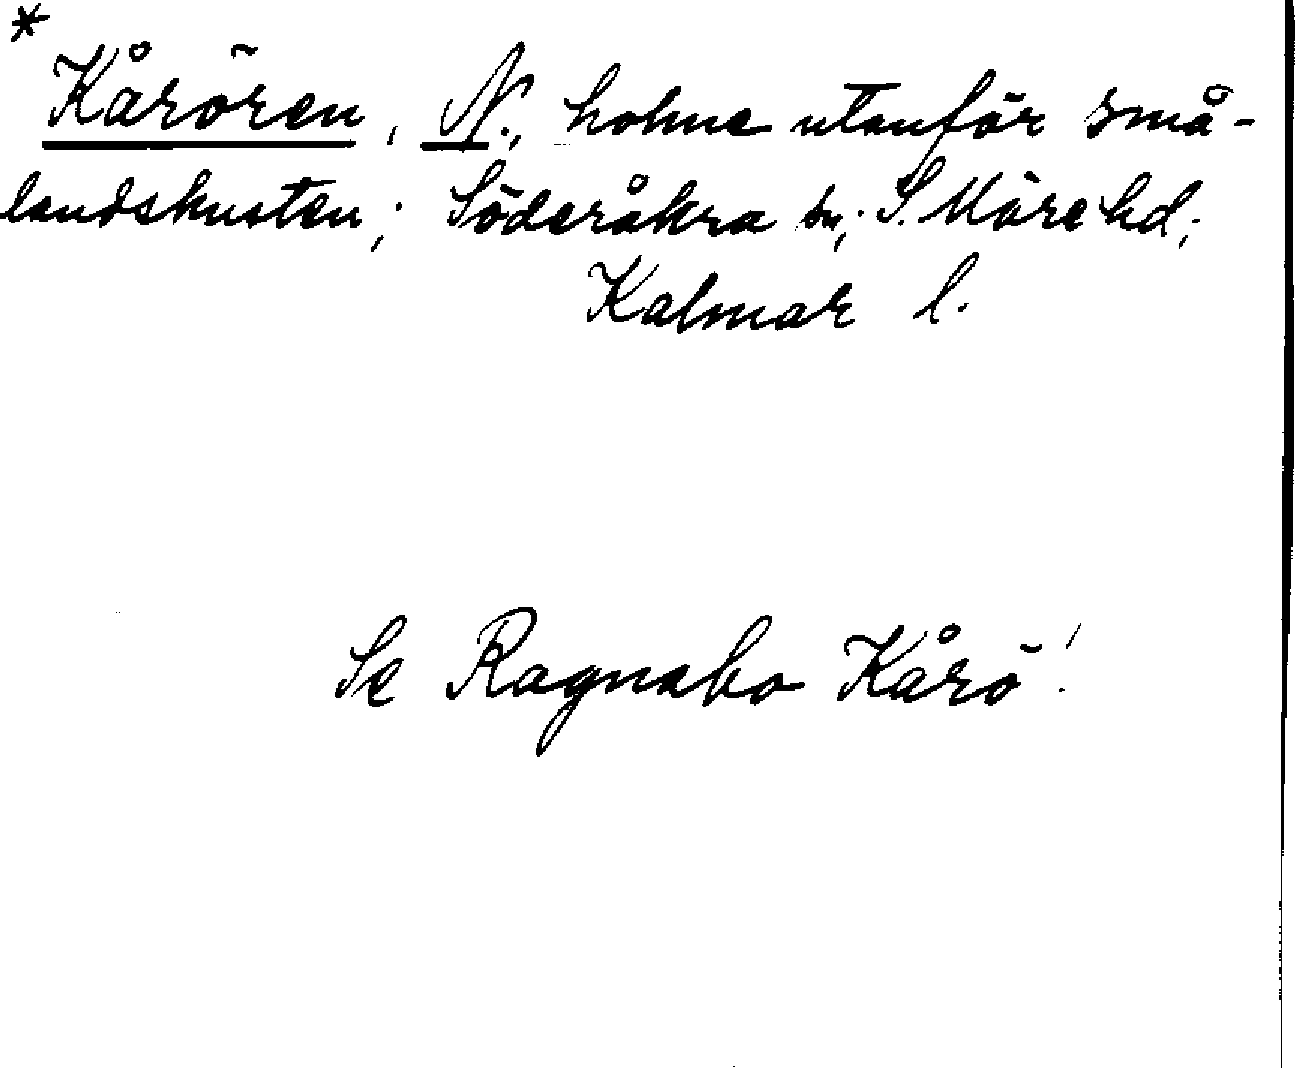 *
Kårören, N., holme utanför små-
landskusten; Söderåkra sn; S. Möre hd;
Kalmar l.
Se Ragnabo Kårö!